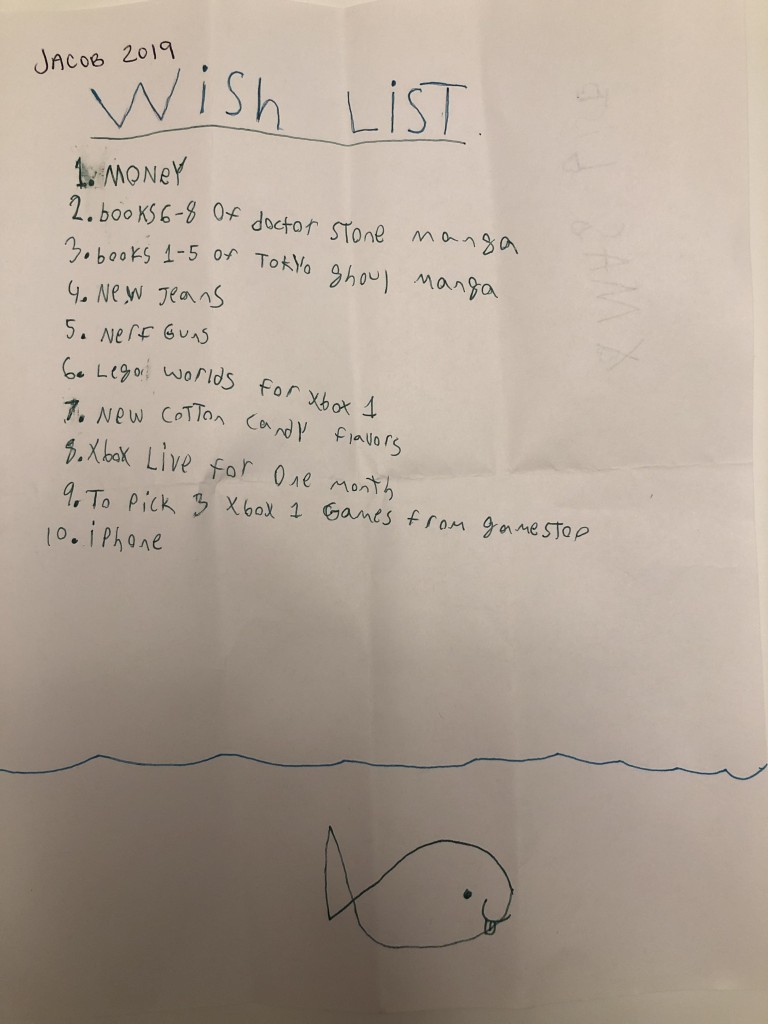 JACOB 2019
Wish LiST
1. MONEY
2. books 6-8 Of doctor STone manga
3. books 1-5 of Tokyo ghoul manga
4. New Jeans
5. Nerf Guns
6. Lego worlds for Xbox 1
7. New coTTon candy flavors
8. Xbox Live for One month
9. To pick 3 Xbox 1 Games from gamesTop
10. iphone